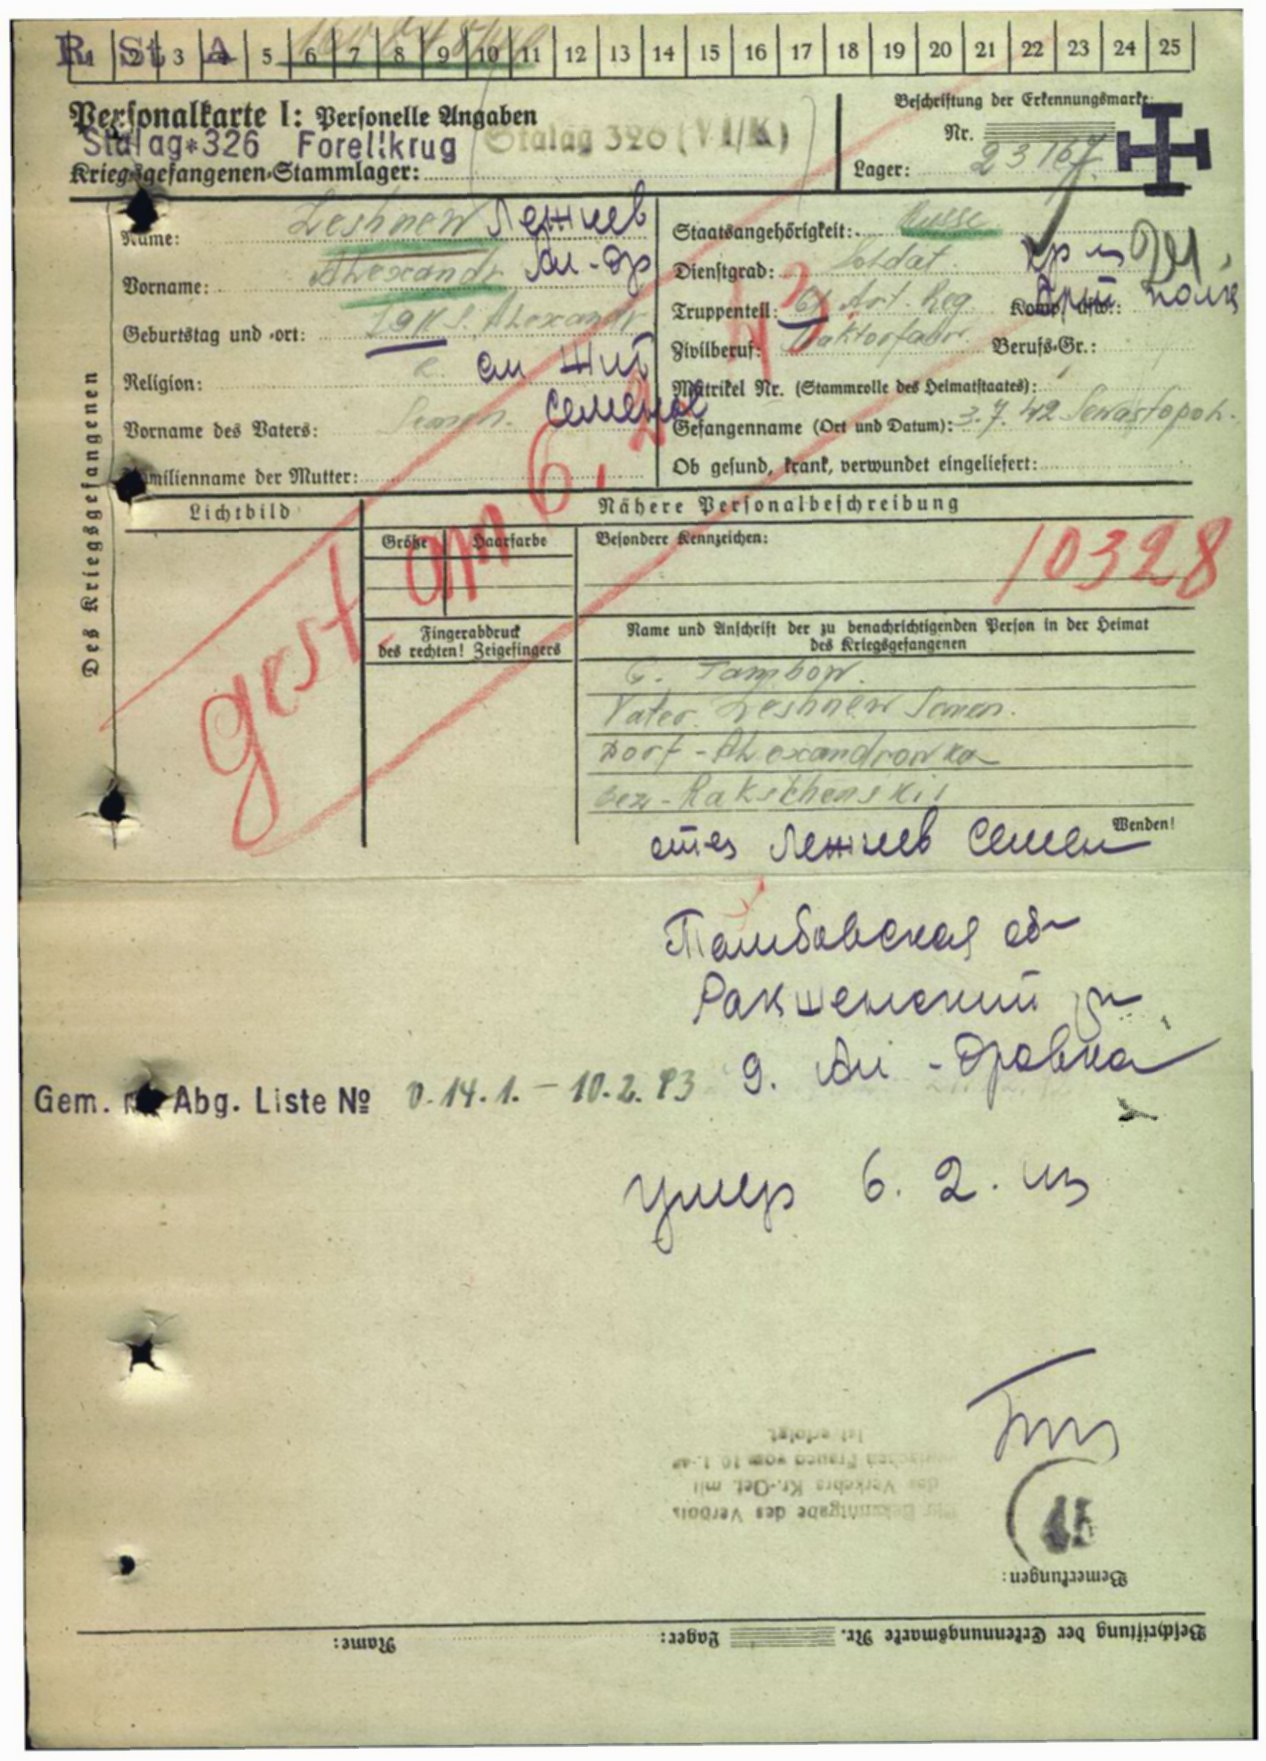 R. St. A
1 2 3 4 5 6 7 8 9 10 11 12 13 14 15 16 17 18 19 20 21 22 23 24 25
Personalkarte I: Personelle Angaben
Beschriftung der Erkennungsmarke
Stalag 326 Forellkrug Stalag 326 (VI/K)
Nr. 23167
Kriegsgefangenen-Stammlager:
Lager:
Des Kriegsgefangenen
Name: Leshnew Лежнев
Vorname: Alexandr Ал-др
Geburtstag und -ort: Alexandr
Religion:
Vorname des Vaters: Semen. Семен
Familienname der Mutter:
Staatsangehörigkeit: Russe
Dienstgrad: Soldat
Truppenteil: Art. Reg. Komp. usw.: Арт полк
Zivilberuf: Traktorfahr. Berufs-Gr.:
Matrikel Nr. (Stammrolle des Heimatstaates):
Gefangenname (Ort und Datum): 3.7.42 Sewastopol.
Ob gesund, krank, verwundet eingeliefert:
gest. am 6. 2. 43
Lichtbild
Nähere Personalbeschreibung
Größe Haarfarbe
Besondere Kennzeichen:
10328
Fingerabdruck
des rechten! Zeigefingers
Name und Anschrift der zu benachrichtigenden Person in der Heimat
des Kriegsgefangenen
G. Tambow.
Vater Leshnew Semen.
Dorf - Alexandrowka
Bez - Rakschenskii
Wenden!
отец Лежнев Семен
Тамбовская об
Ракшенский р
д. Ал-дровка
Gem. Abg. Liste № 0.14.1. – 10.2.43
умер 6. 2. 43
ist erfolgt
des Verkehrs Kr.-Gef. mit
Bekanntgabe des Verbots
45
Bemerkungen:
Beschriftung der Erkennungsmarke Nr. Lager: Name: